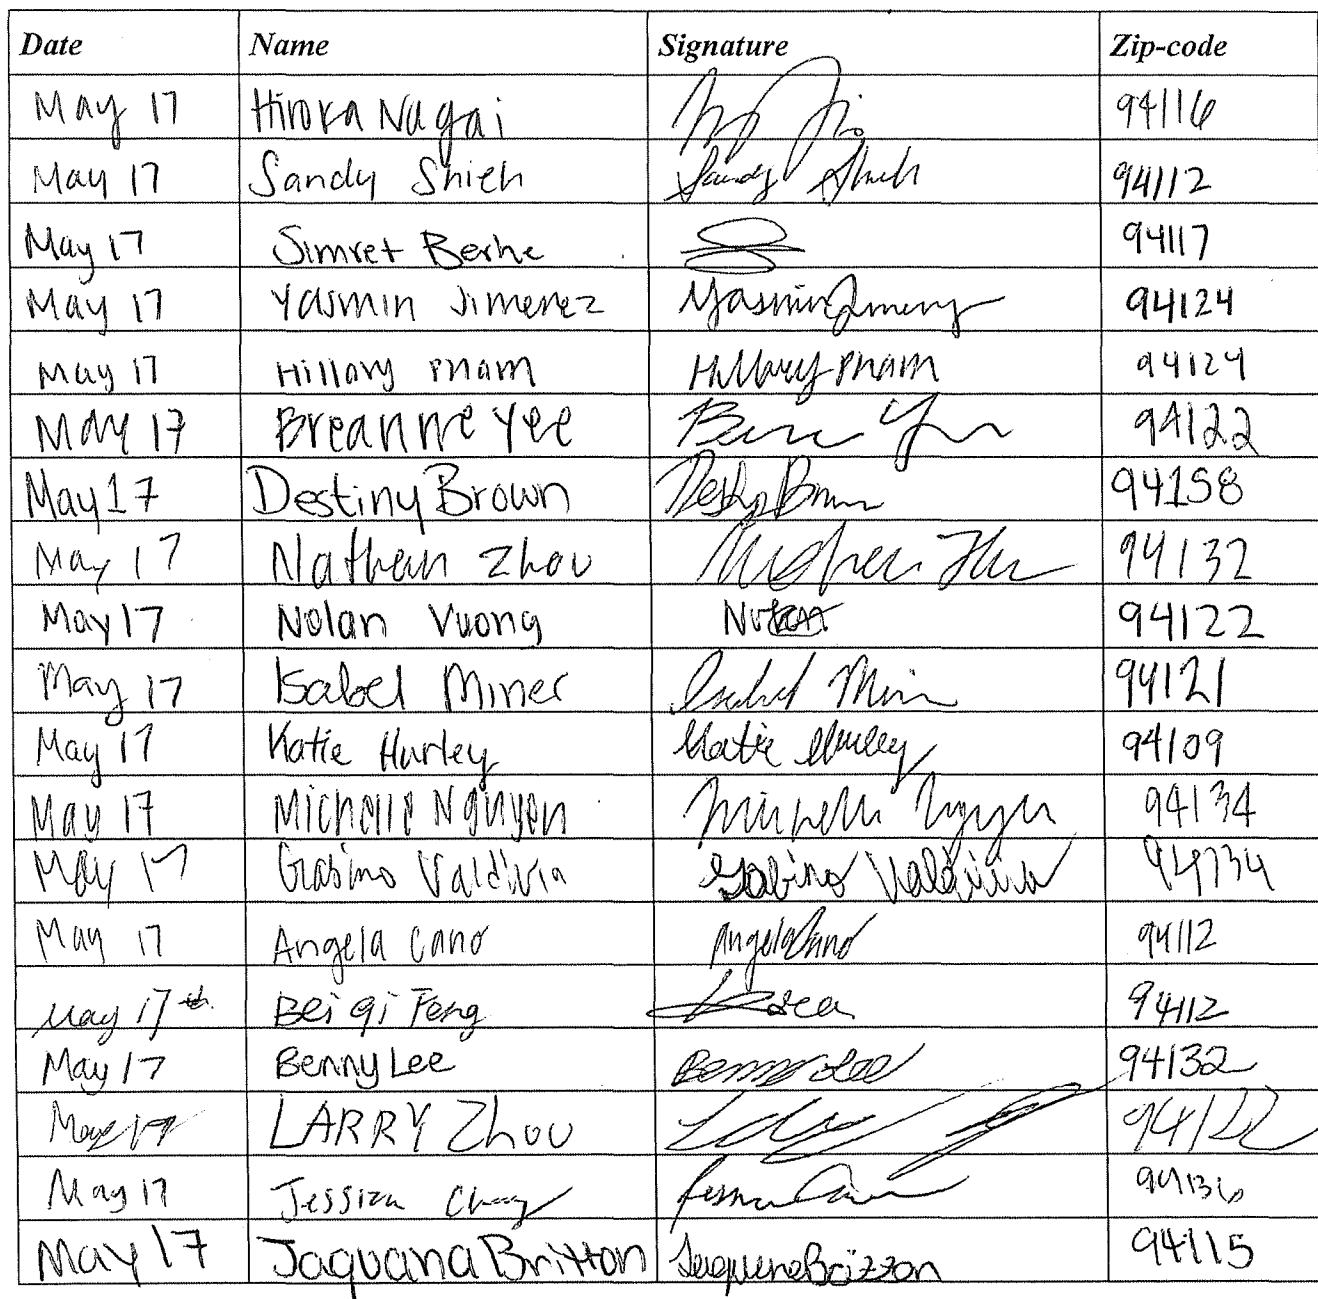 Date Name Signature Zip-code
May 17 Hiroka Nagai 94116
May 17 Sandy Shieh Sandy Shieh 94112
May 17 Simret Berhe 94117
May 17 Yasmin Jimenez Yasmin Jimenez 94124
May 17 Hillary Pham Hillary Pham 94124
May 17 Breanne Yee 94122
May 17 Destiny Brown 94158
May 17 Nathan Zhou 94132
May 17 Nolan Vuong 94122
May 17 Isabel Miner 94121
May 17 Katie Hurley Katie Hurley 94109
May 17 Michelle Nguyen Michelle Nguyen 94134
May 17 Gabino Valdivia Gabino Valdivia 94134
May 17 Angela Cano Angela Cano 94112
May 17th Bei Qi Feng 94112
May 17 Benny Lee Benny Lee 94132
May 17 LARRY Zhou 94122
May 17 Jessica
May 17 Jaquana Britton 94115